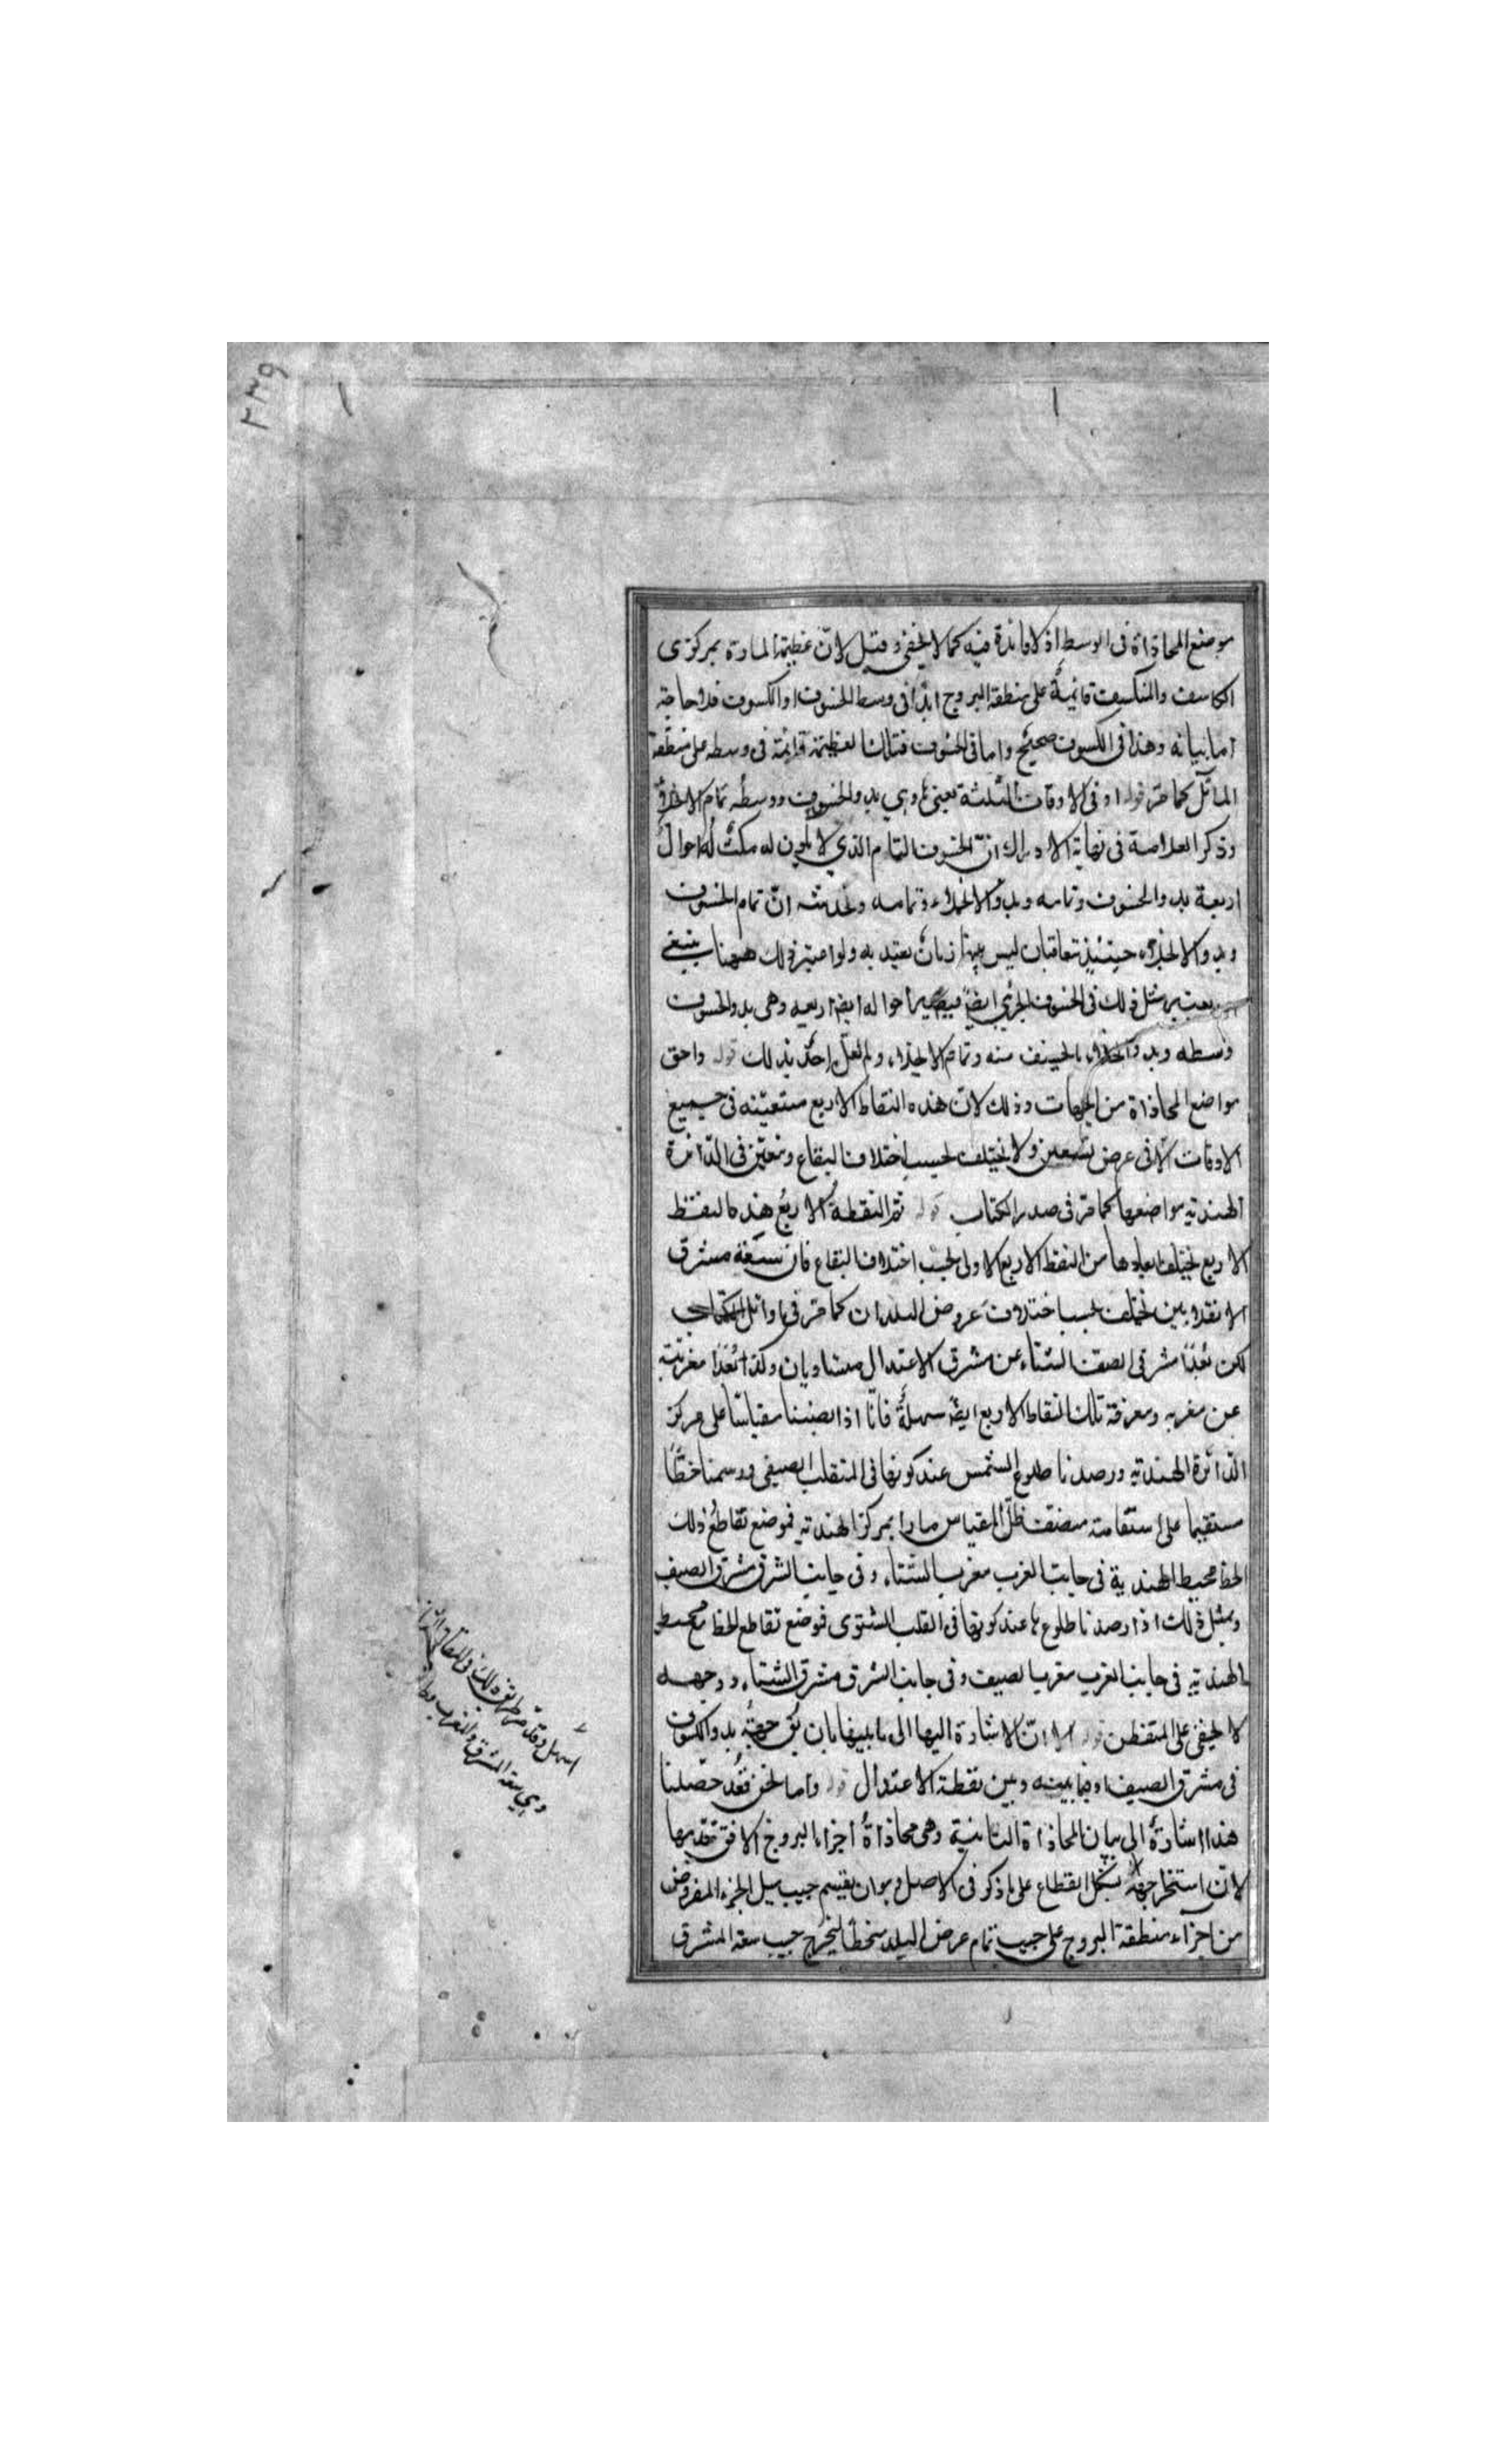 ٢٣٩
موضع المحاذاة فى الوسط اذ لا فائدة فيه كما لا يخفى وقيل لانّ عظيمة المارة بمركزى
الكاسف والمنكسف قائمة على منطقة البروج ابدا فى وسط الخسوف او الكسوف فلا حاجة
اما بيانه وهذا فى الكسوف صحيح واما فى الخسوف فتلك العظيمة قائمة فى وسطه على منطقة
المائل كما مرّ قوله او فى الاوقات الثلثة يعنى بها وهى بدو الخسوف ووسطه تمام الانجلاء
وذكر العلامة فى نهاية الادراك انّ الخسوف التام الذي لا يكون له مكث له احوال
اربعة بدو الخسوف وتمامه وبدو الانجلاء وتمامه ولحديثه انّ تمام الخسوف
وبدو الانجلاء حينئذ متعاقبان ليس بينهما زمان يعتد به ولو اعتبر ذلك ههنا ينبغى
يعتبر مثل ذلك فى الخسوف الجزئي ايضا فيصير احواله ايضا اربعه وهى بدو الخسوف
وسطه وبدو انجلاء المنخسف منه وتمام الانجلاء ولم يقل احد بذلك قوله واحق
مواضع المحاذاة من الجهات وذلك لانّ هذه النقاط الاربع متعيّنه فى جميع
الاوقات الا فى عرض تسعين ولا يختلف بحسب اختلاف البقاع ونعيّن فى الدّائرة
الهنديّه مواضعها كما مرّ فى صدر الكتاب قوله ثم النقطة الاربع هذه النقط
الاربع يختلف ابعادها من النقط الاربع الاولى بحسب اختلاف البقاع فان سعة مشرق
الانقلابين يختلف بحسب اختلاف عروض البلدان كما مرّ فى اوائل الكتاب
لكن بُعْدَا مشرقى الصيف الشتاء عن مشرق الاعتدال متساويان وكذا بُعْدَا مغربيّه
عن مغربه ومعرفة تلك النقاط الاربع ايضا سهلة فانّا اذا نصبنا مقياسًا على مركز
الدّائرة الهنديّه ورصدنا طلوع الشمس عند كونها فى المنقلب الصيفى ورسمنا خطًّا
مستقيما على استقامته منصف ظلّ المقياس مارا بمركز الهنديّه فموضع تقاطع ذلك
الخط محيط الهندية فى جانب الغرب مغرب الشتاء وفى جانب الشرق مشرق الصيف
وبمثل ذلك اذا رصدنا طلوعها عند كونها فى القلب الشتوى فموضع تقاطع الخط مع محيط
الهنديّه فى جانب الغرب مغرب الصيف وفى جانب الشرق مشرق الشتاء ووجهه
لا يخفى على المتفطن قوله الا انّ الاشارة اليها الى ما بينها بان يق جهة بدو الكسوف
فى مشرق الصيف او فيما بينه وبين نقطة الاعتدال قوله واما نحن فقد حصّلنا
هذا اشارة الى بيان المحاذاة الثانية وهى محاذاة اجزاء البروج الافق تقديرها
لانّ استخراجها بشكل القطاع على ما ذكر فى الاصل وهو ان يقسم جيب ميل الجزء المفروض
من اجزاء منطقة البروج على جيب تمام عرض البلد منحطا ليخرج جيب سعة المشرق
اسهل وقد مرّ طريقة ذلك فى المقالة
وهي سعة المشرق والمغرب